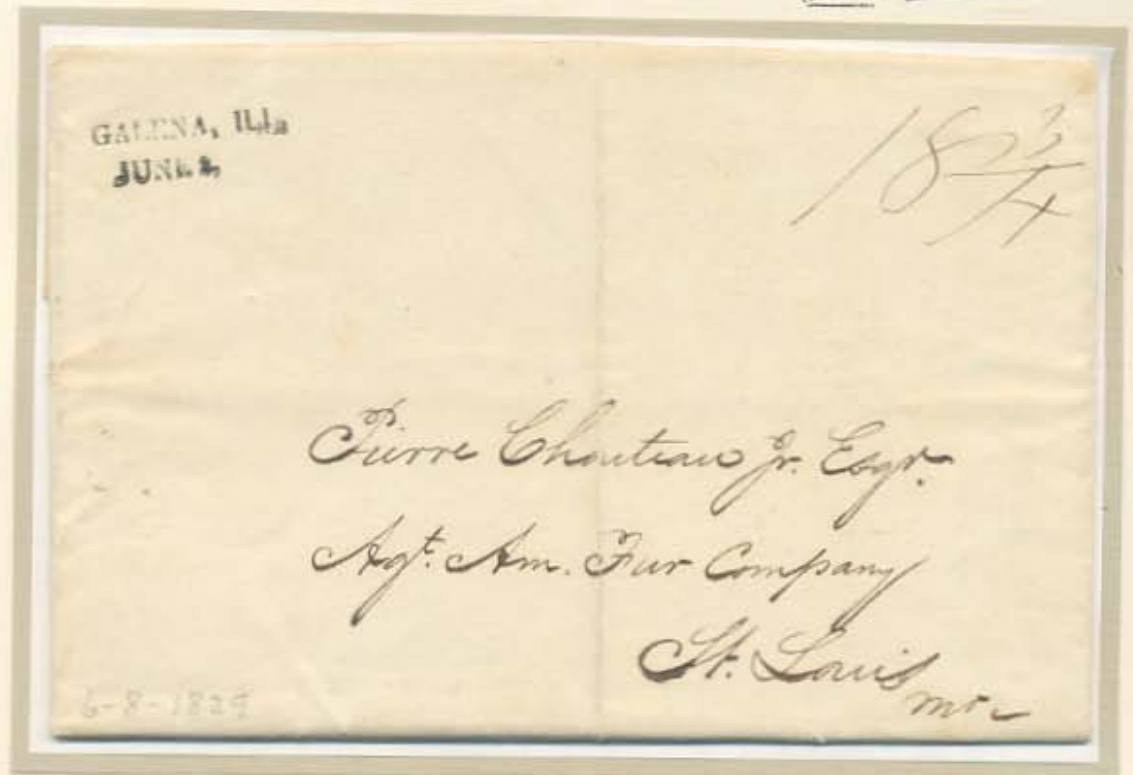 GALENA, Ill.
JUNE 8,
18 3/4
Pierre Chouteau Jr. Esqr.
Agt. Am. Fur Company
St. Louis
Mo
6-8-1829